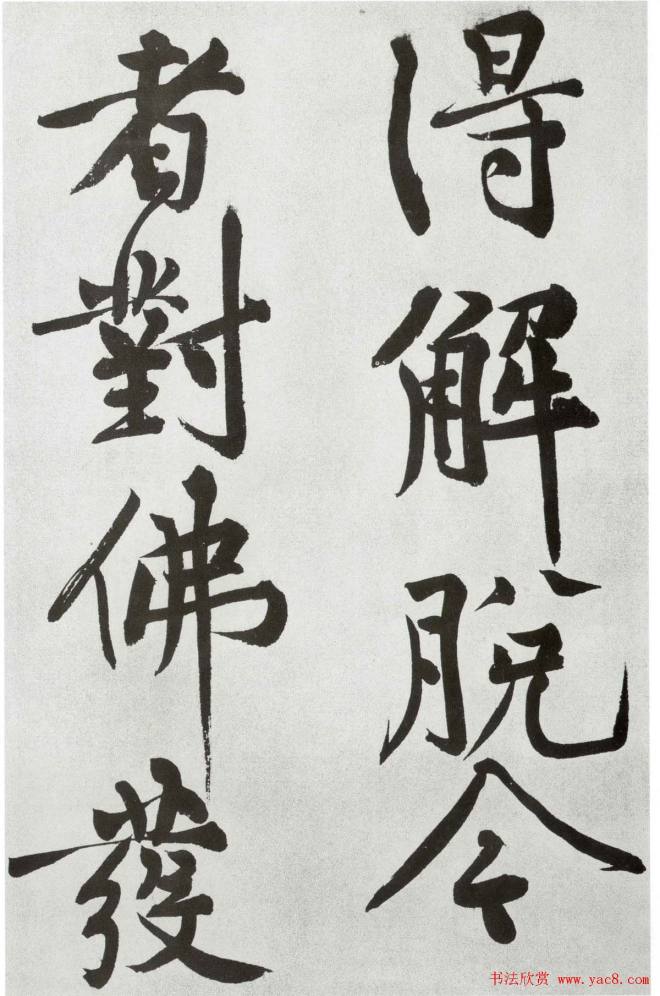 得解脱今
者對佛發
书法欣赏 www.yac8.com